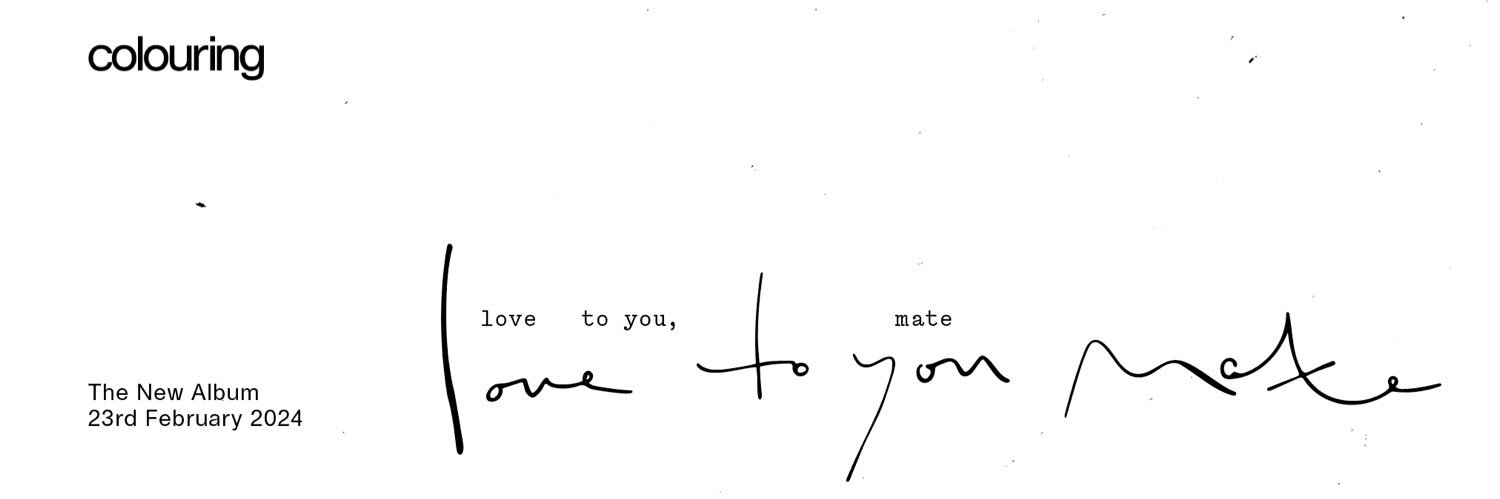 colouring
love to you, mate
love to you mate
The New Album
23rd February 2024